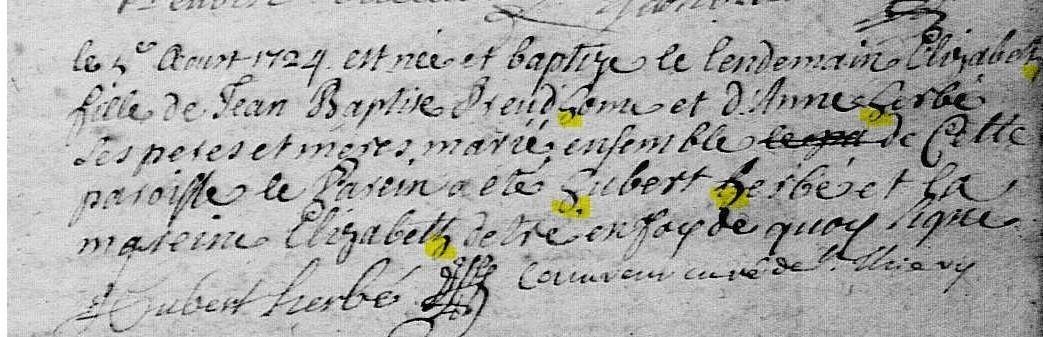 le 5e Aoust 1724 est née et baptizé le lendemain Elizabeth
fille de Jean Baptiste Preudhomme et d'Anne herbé
ses peres et meres marié ensemble de Cette
paroisse le Parein a eté hubert herbé et la
mareine Elizabeth detré en foy de quoy signé
Hubert herbé Couvreur curé de St Thiery